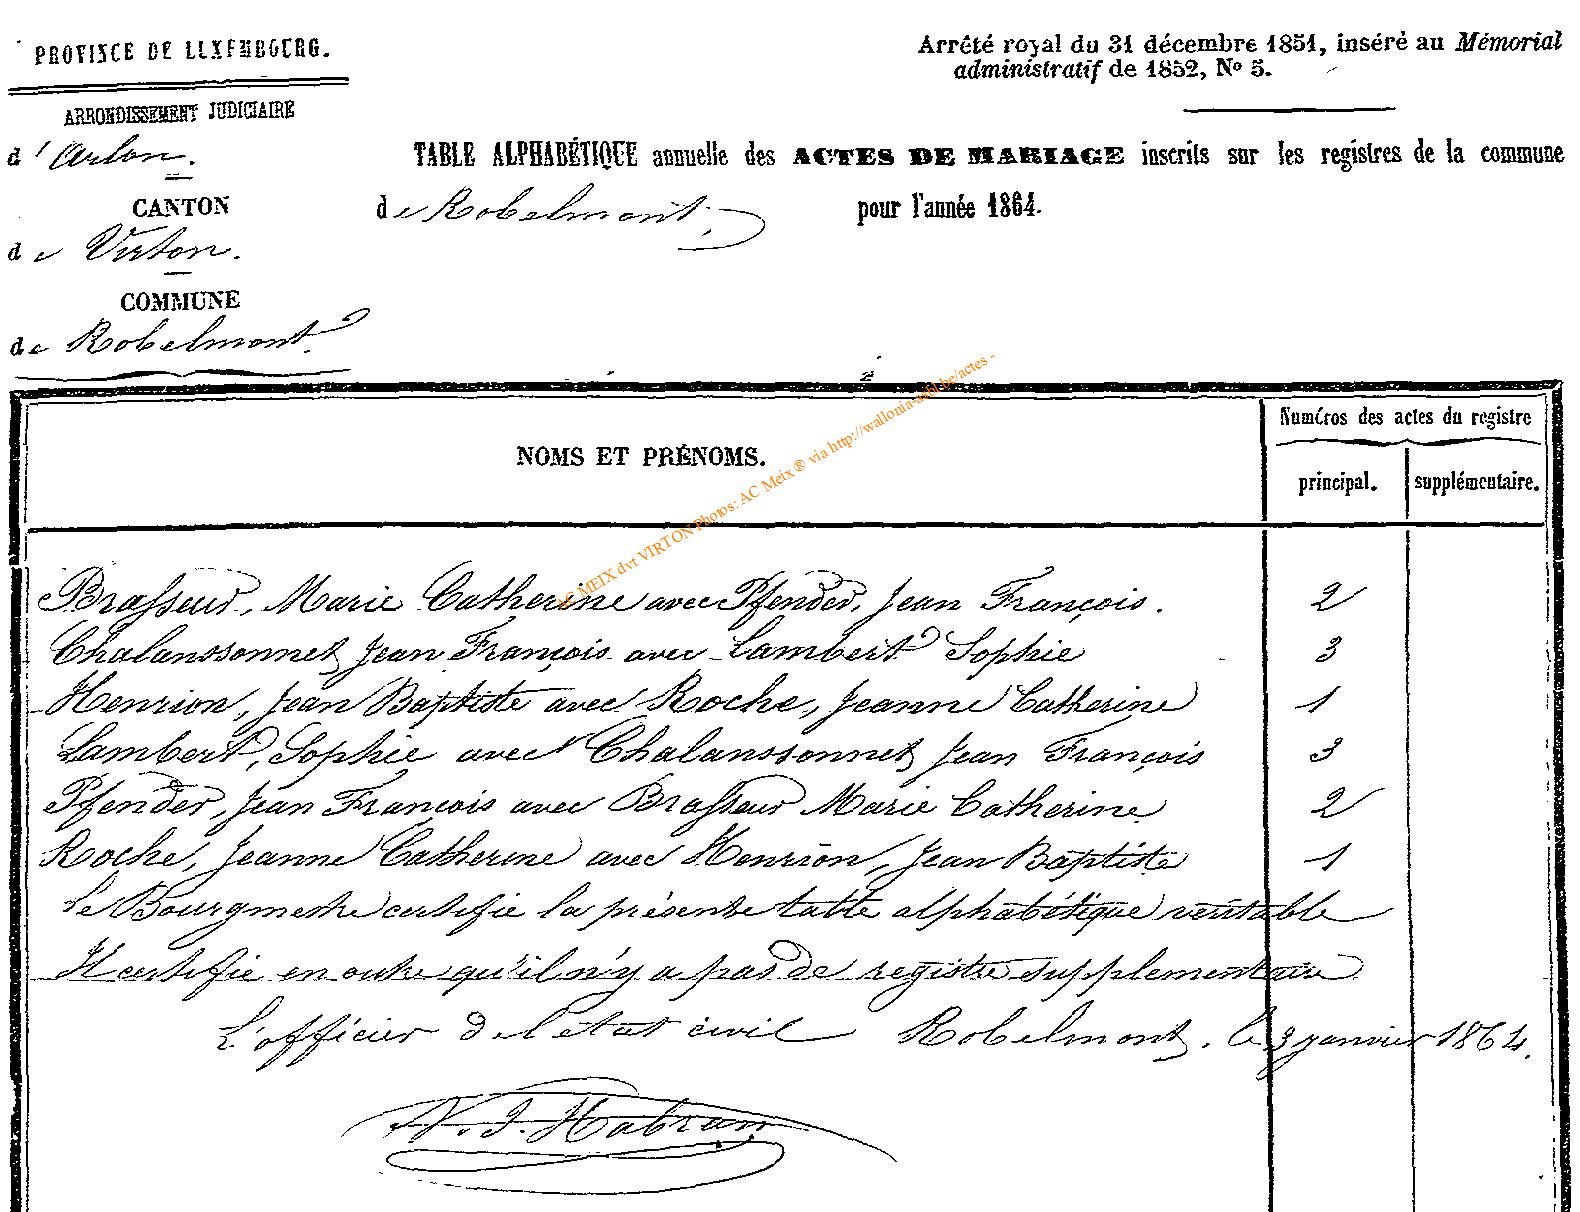 PROVINCE DE LUXEMBOURG.
Arrêté royal du 31 décembre 1851, inséré au Mémorial
administratif de 1852, No 5.
ARRONDISSEMENT JUDICIAIRE
d'Arlon.
TABLE ALPHABÉTIQUE annuelle des ACTES DE MARIAGE inscrits sur les registres de la commune
de Robelmont. pour l'année 1864.
CANTON
de Virton.
COMMUNE
de Robelmont.
AC MEIX dvt VIRTON Photos: AC Meix ® via http://wallonia-asbl.be/actes -
Numéros des actes du registre
NOMS ET PRÉNOMS.
principal. supplémentaire.
Brasseur, Marie Catherine avec Pfender, Jean François. 2
Chalanssonnet Jean François avec Lambert Sophie 3
Henrion, Jean Baptiste avec Roche, Jeanne Catherine 1
Lambert, Sophie avec Chalanssonnet Jean François 3
Pfender, Jean François avec Brasseur Marie Catherine 2
Roche, Jeanne Catherine avec Henrion, Jean Baptiste 1
Le Bourgmestre certifie la présente table alphabétique véritable
Il certifie en outre qu'il n'y a pas de registre supplémentaire
L'officier de l'état civil Robelmont, le 3 janvier 1864.
N. J. Habran